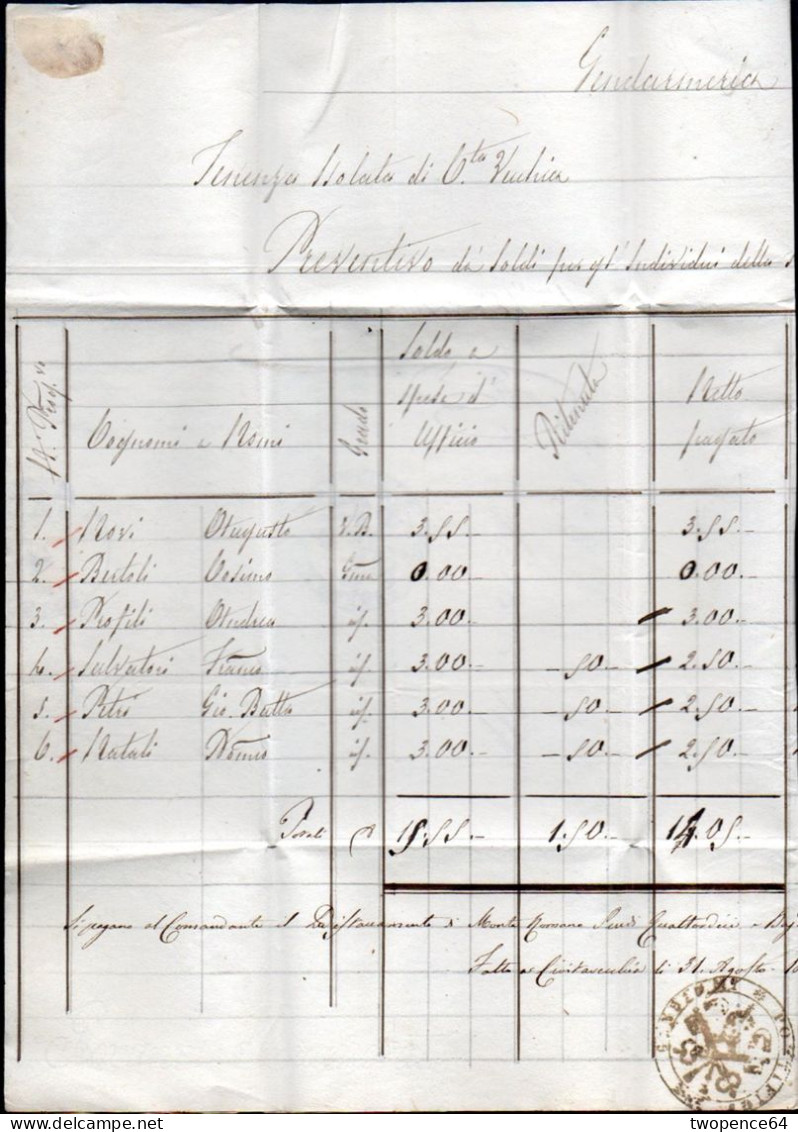 Gendarmeria
Tenenza Isolata di C.ta Vecchia
Preventivo di Soldi per gl' Individui della
N.o Prog.vo
Cognomi e Nomi
Grado
Soldo e
spese d'
Ufficio
Ritenuta
Netto
pagato
1. Novi Augusto V.B. 3.55.- 3.55.-
2. Bertoli Cosimo Gme 0.00.- 0.00.-
3. Profili Andrea id. 3.00.- 3.00.-
4. Salvatori Franco id. 3.00.- -50.- 2.50.-
5. Petri Gio. Batta id. 3.00.- -50.- 2.50.-
6. Natali id. 3.00.- -50.- 2.50.-
Totali 15.55.- 1.50.- 14.05.-
Si pagano al Comandante il Distaccamento di Monte Romano Scudi Quattordici e Baj
Fatto a Civitavecchia li 31. Agosto. 1
http://www.delcampe.net
twopence64